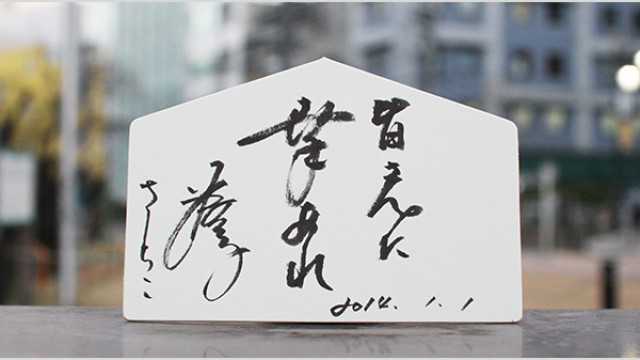 皆さんに
幸あれ
さとこ
2014. 1. 1